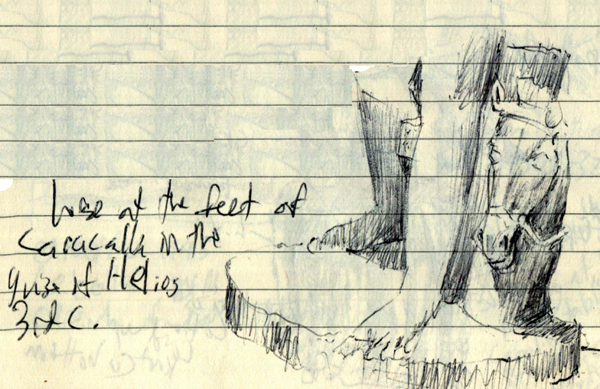 horse at the feet of
Caracalla in the
guise of Helios
3rd C.